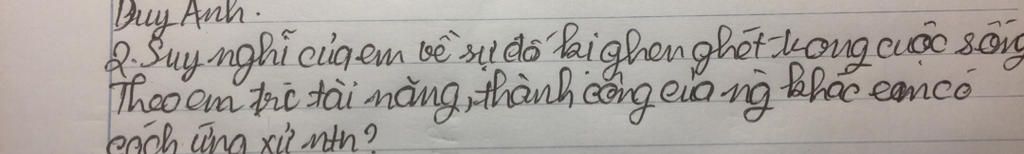 Duy Anh.
2. Suy nghĩ của em về sự đố kị ghen ghét trong cuộc sống
Theo em trc tài năng, thành công của ng khác em có
cách ứng xử ntn?